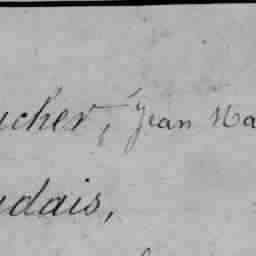 ucher, Jean Ma
udais,